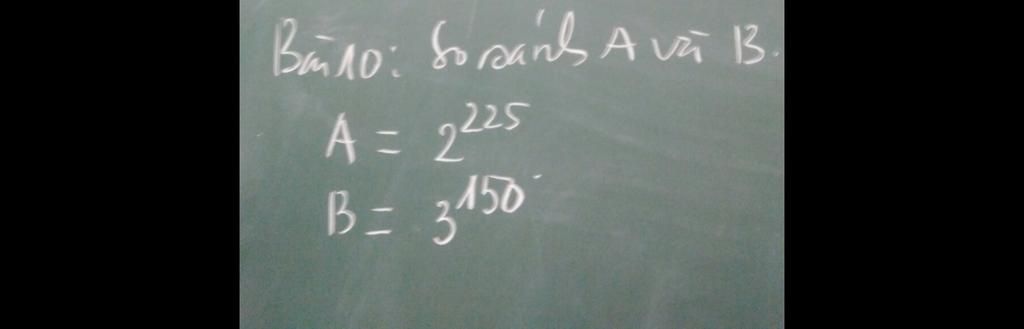 Bài 10: So sánh A và B.
A = 2^225
B = 3^150